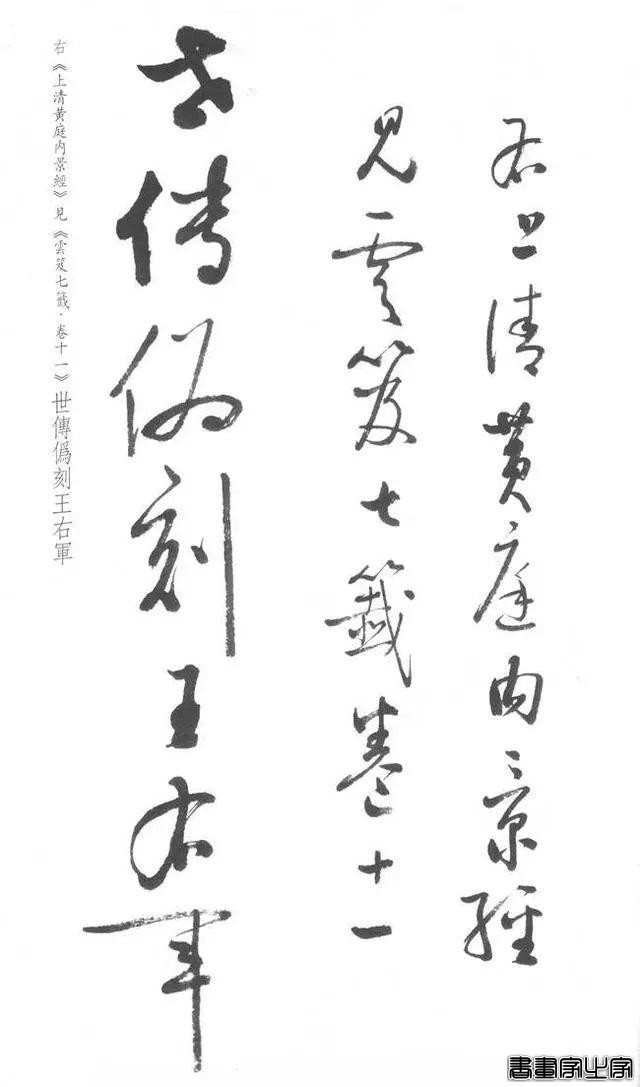 右上清黃庭内景經
見雲笈七籤卷十一
世傳僞刻王右軍
右《上清黃庭内景經》見《雲笈七籤·卷十一》世傳僞刻王右軍
書畫家之家